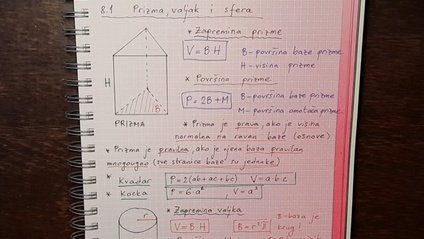 8.1 Prizma, valjak i sfera
* Zapremina prizme
V = B·H
B - površina baze prizme
H - visina prizme
H
B
* Površina prizme
P = 2B + M
B - površina baze prizme
M - površina omotača prizme
PRIZMA
* Prizma je prava, ako je visina
normalna na ravan baze (osnove)
* Prizma je pravilna, ako je njena baza pravilan
mnogougao (sve stranice baze su jednake)
* Kvadar P = 2(ab+ac+bc) V = a·b·c
* Kocka P = 6·a² , V = a³
* Zapremina valjka
r
V = B·H
B = r²π
B - baza je
krug!